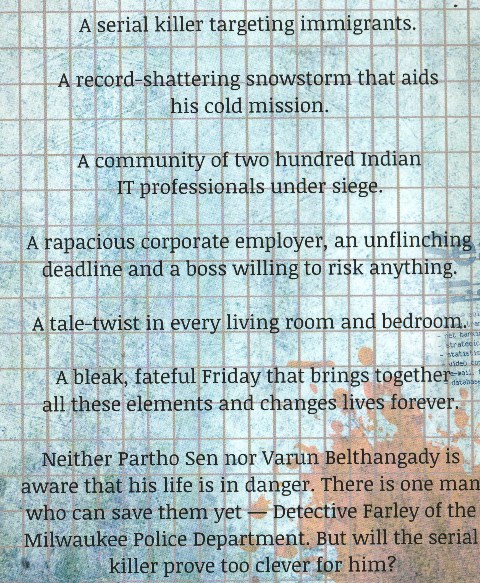 A serial killer targeting immigrants.
A record-shattering snowstorm that aids
his cold mission.
A community of two hundred Indian
IT professionals under siege.
A rapacious corporate employer, an unflinching
deadline and a boss willing to risk anything.
A tale-twist in every living room and bedroom.
A bleak, fateful Friday that brings together
all these elements and changes lives forever.
Neither Partho Sen nor Varun Belthangady is
aware that his life is in danger. There is one man
who can save them yet — Detective Farley of the
Milwaukee Police Department. But will the serial
killer prove too clever for him?
- strategic
- statistic
database